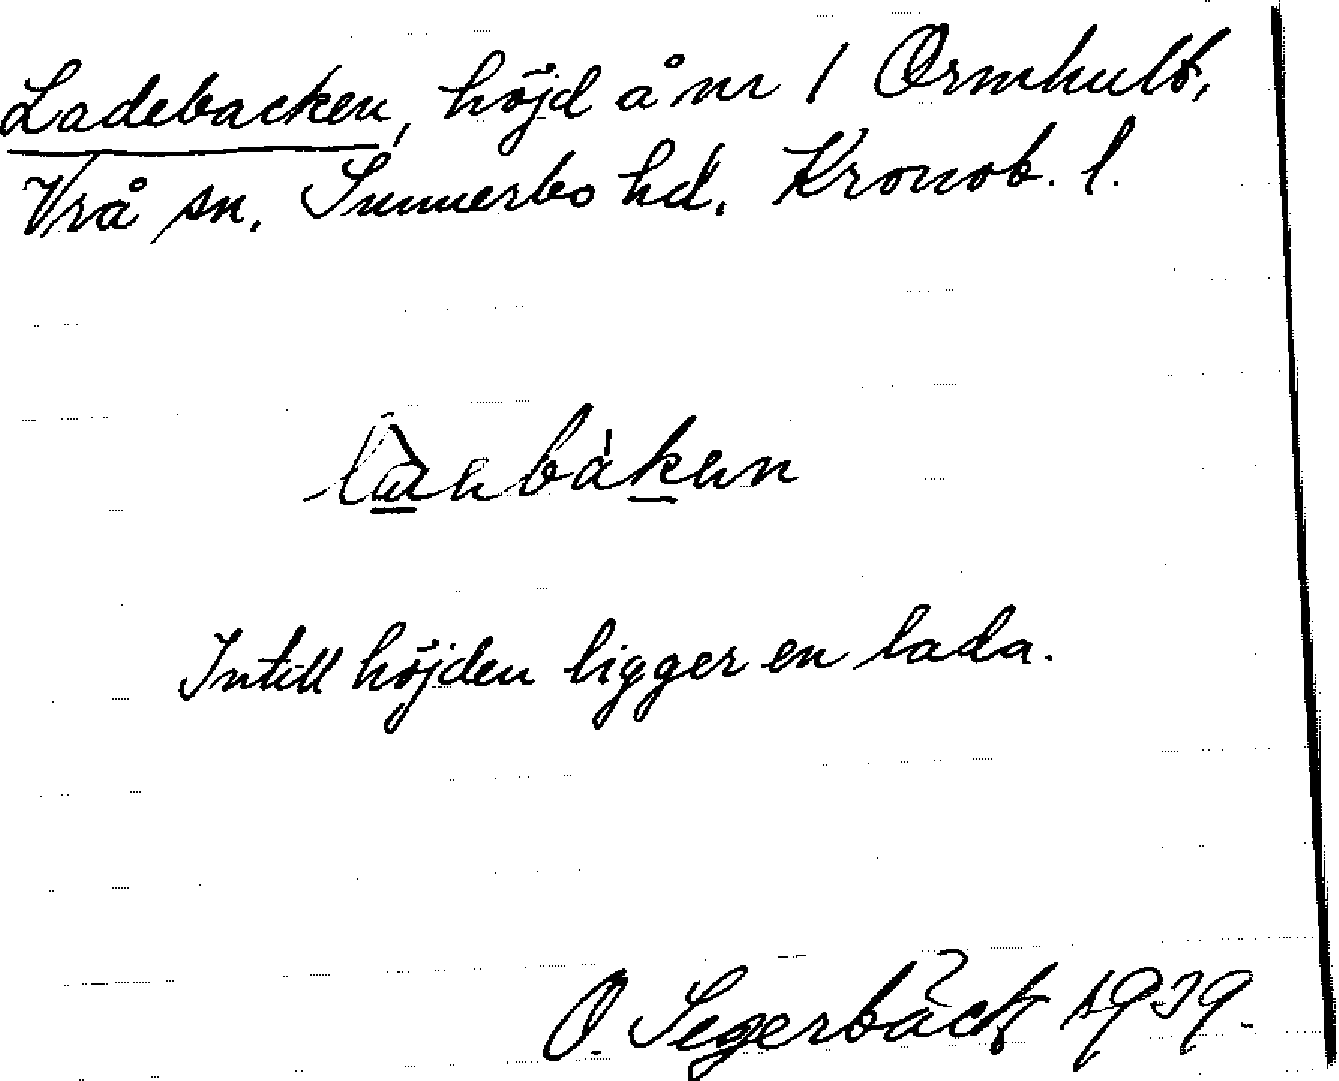 Ladebacken, höjd å nr 1 Ormhult,
Vrå sn. Sunnerbo hd. Kronob. l.
Intill höjden ligger en lada.
O. Segerbäck 1939.